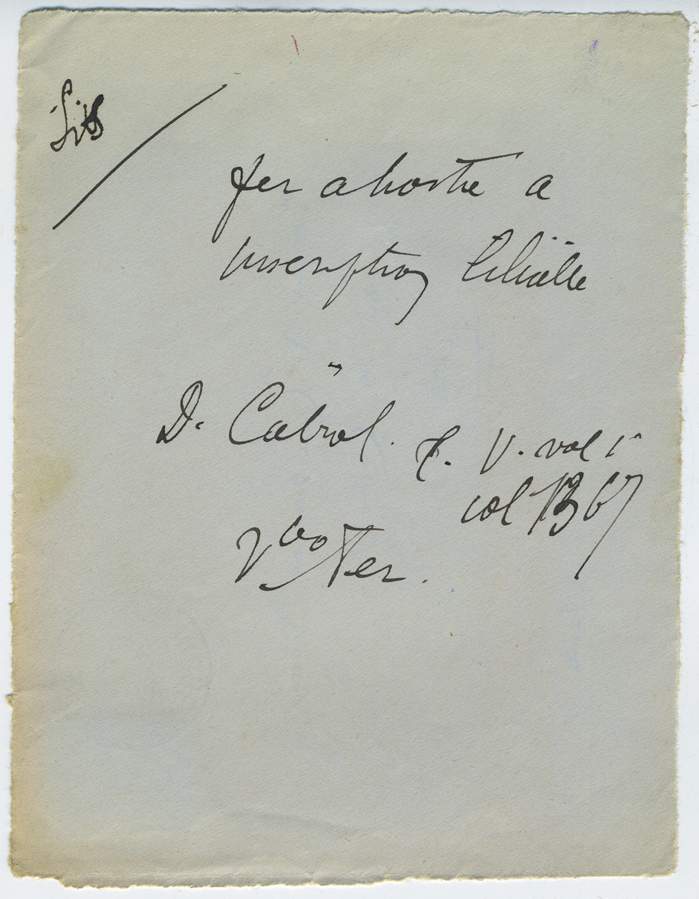 Lit
fer a hostie a
inscription
D. Cabrol. t. V. vol 1
col 1367
Vbo Fer.